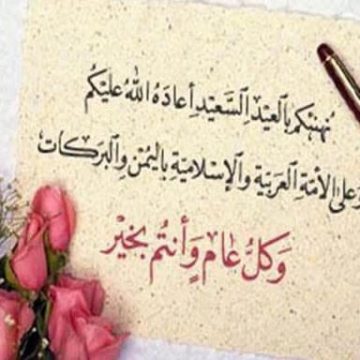 نهنئكم بِالعِيْدِ السَّعِيْدِ أعَادَهُ اللهُ عَليْكُم
وَعلى الأمَّةِ العَرَبيَّةِ وَالإسْلاميَّةِ بِاليُمْنِ وَالبَرَكَات
وَكلُّ عَام وَأنتُم بخَيْر